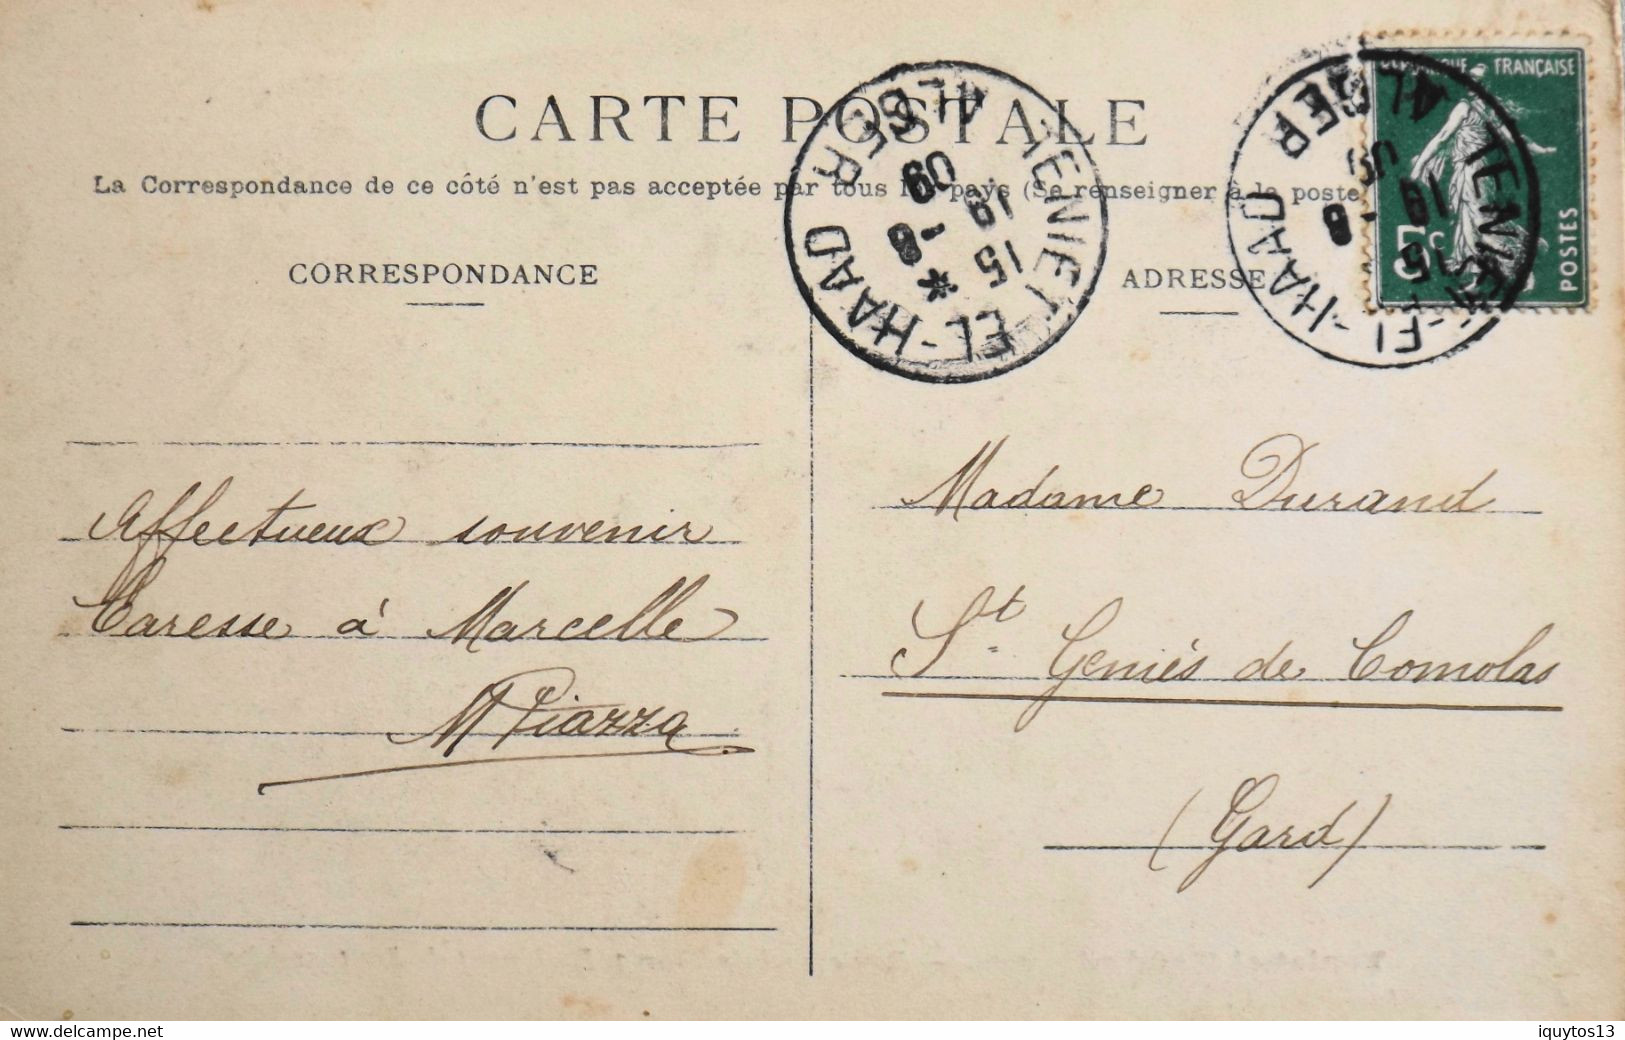 CARTE POSTALE
La Correspondance de ce côté n'est pas acceptée par tous les pays (Se renseigner à la poste
CORRESPONDANCE
ADRESSE
TENIET-EL-HAAD
ALGER
15
18 -8
09
TENIET-EL-HAAD
ALGER
15
18 -8
09
REPUBLIQUE FRANÇAISE
5c
POSTES
Affectueux souvenir
Caresse à Marcelle
M Piazza
Madame Durand
St Geniés de Comolas
(Gard)
delcampe.net
iquytos13